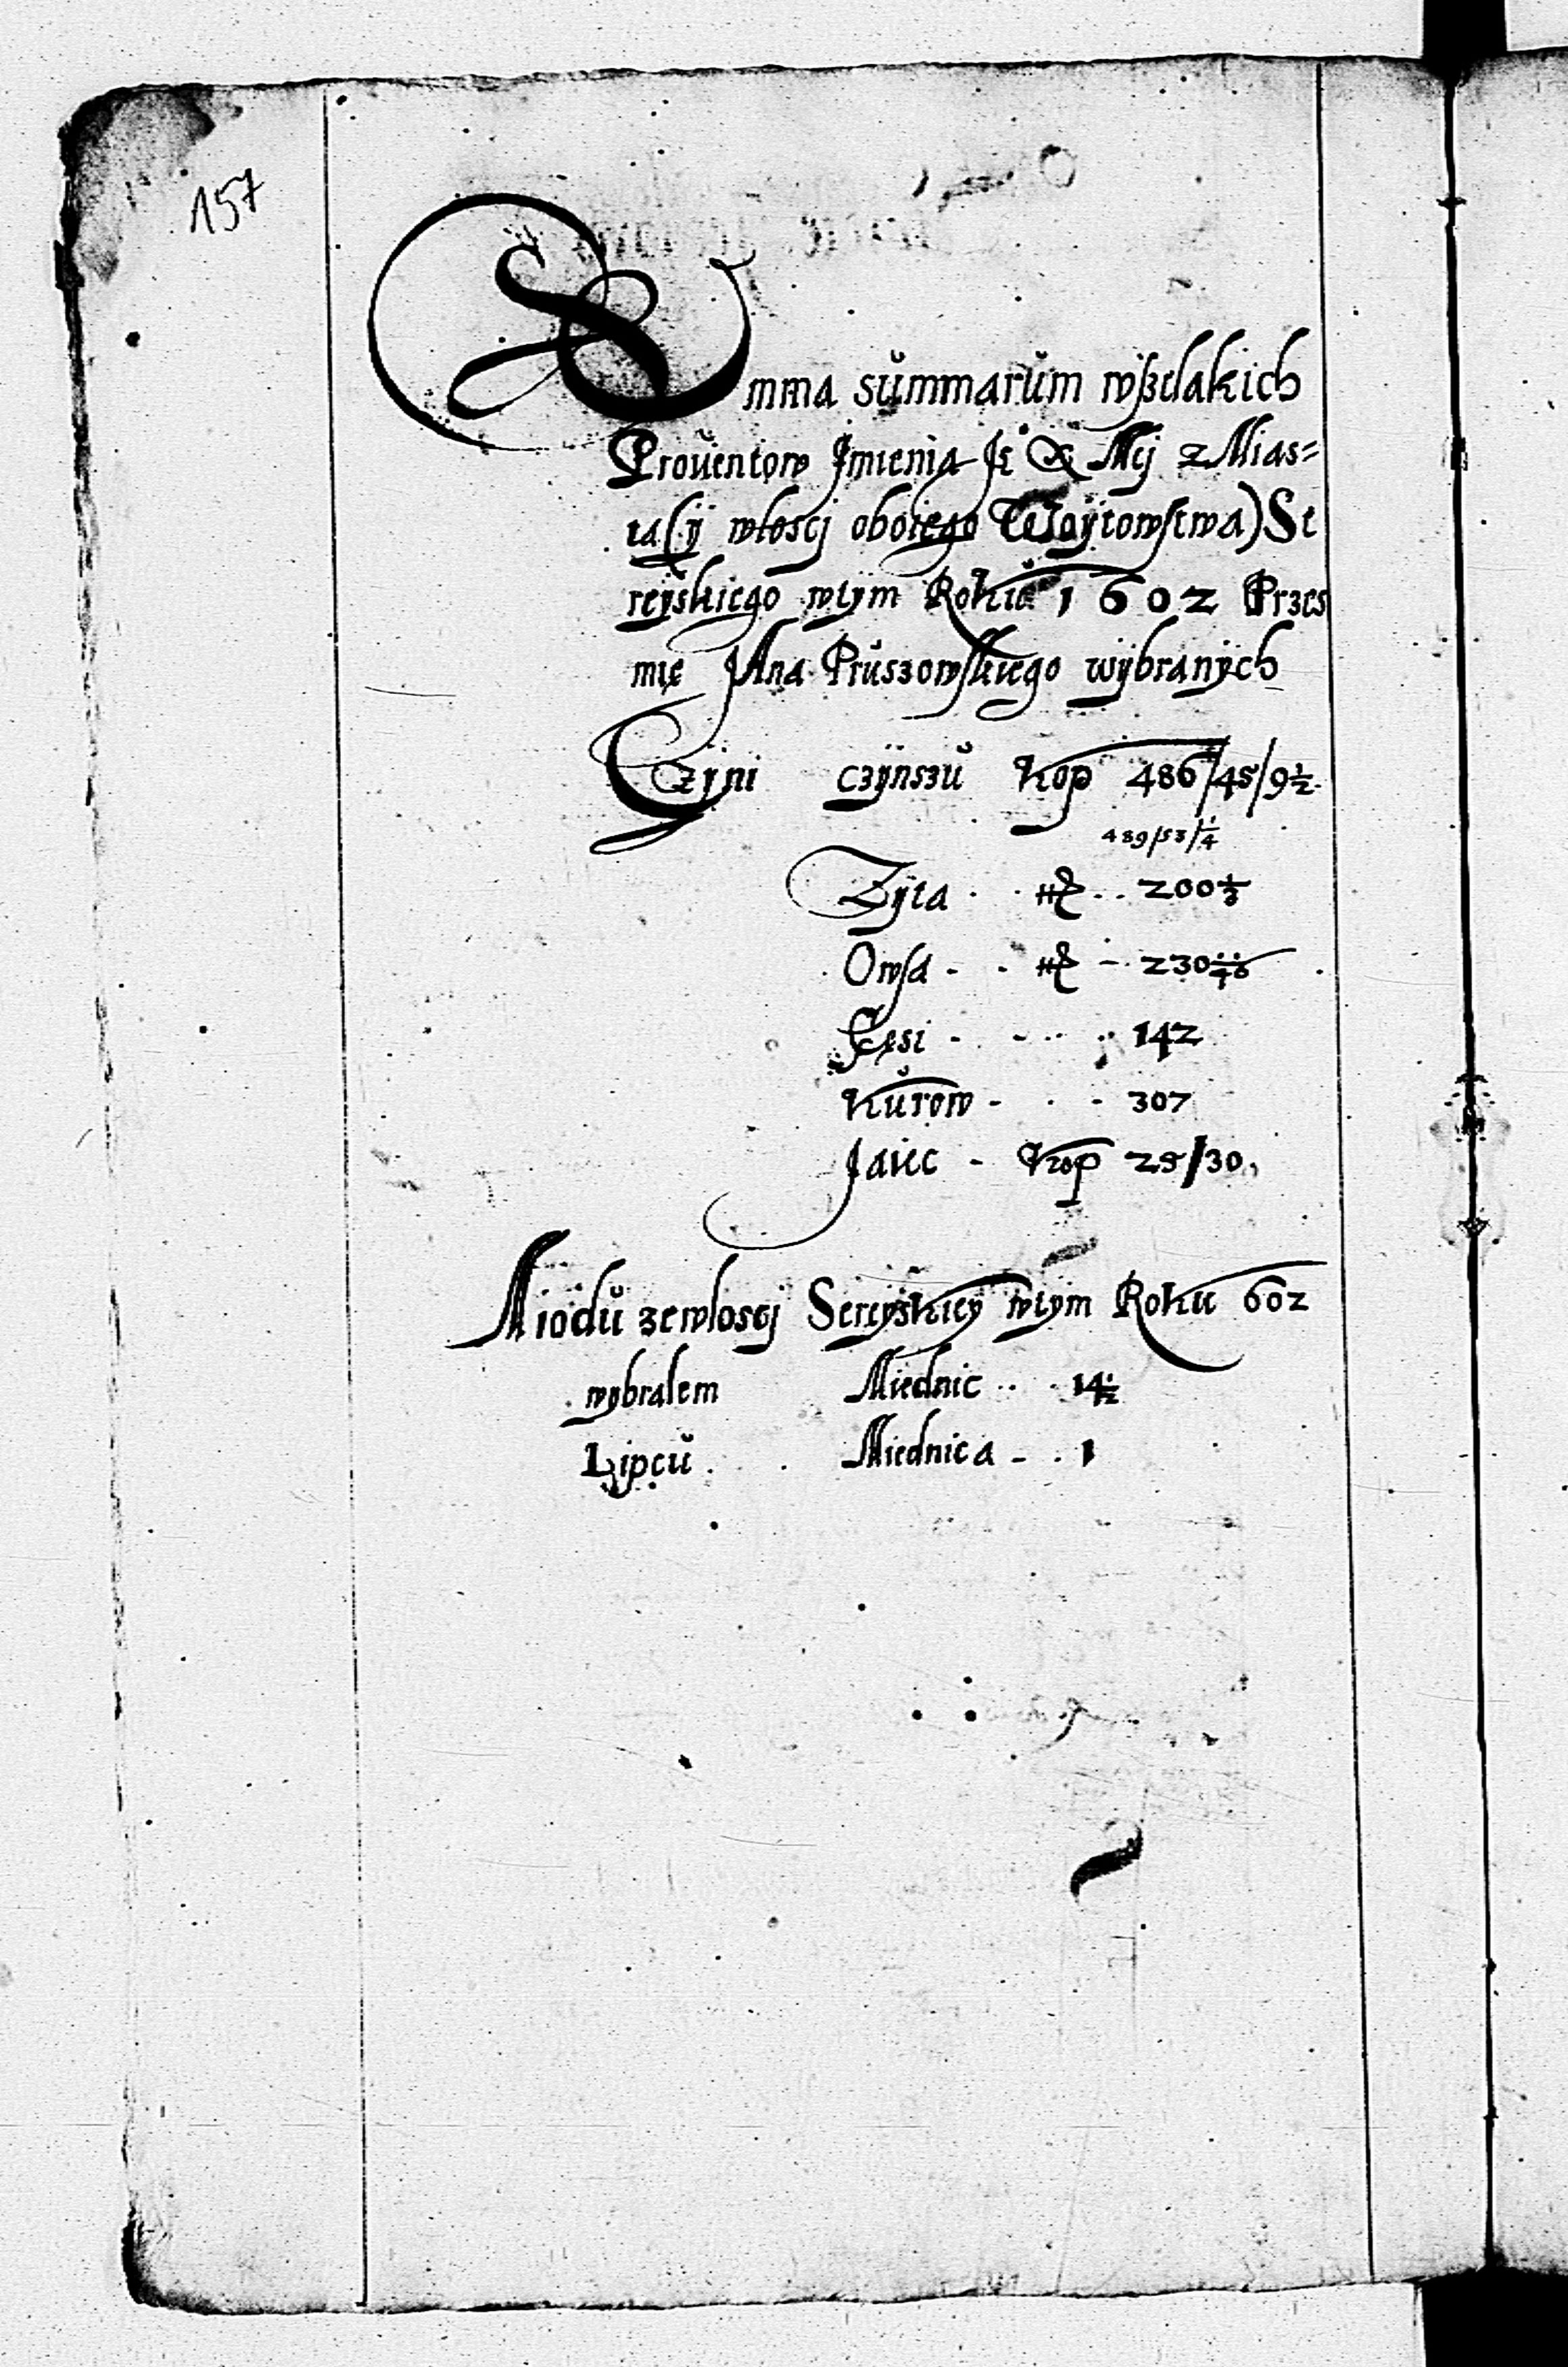 157
Summa summarum wszelakich
Prouentow Imienia Je° X Mcj z Mias=
ta (y włoscj oboiego Woÿtowstwa) Se
reÿskiego wtym Roku 1602 Przes
mię JAna Pruszowskiego wÿbranÿch
Czÿni czÿnszŭ Kop 486/45/9½
489/53/¼
Zÿta 200⅓
Owsa 230
Gęsi - - 142
Kŭrow - - 307
Jaiec - Kop 25/30
Miodŭ zewłoscj Sereÿskieÿ wtym Roku 602
wybralem Miednic 14½
Lipcŭ Miednica - 1